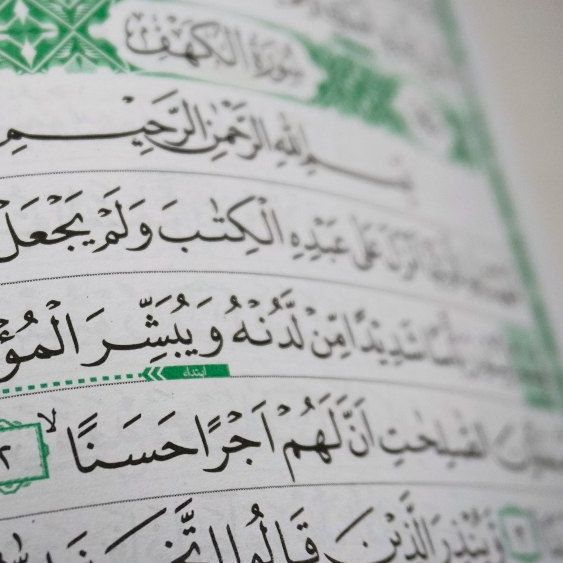 سُورَةُ الْكَهْفِ
بِسْمِ اللّٰهِ الرَّحْمٰنِ الرَّحِيْمِ
اَنْزَلَ عَلٰى عَبْدِهِ الْكِتٰبَ وَلَمْ يَجْعَلْ
شَدِيْدًا مِّنْ لَّدُنْهُ وَيُبَشِّرَ
ابتداء
الصّٰلِحٰتِ اَنَّ لَهُمْ اَجْرًا حَسَنًا ۙ ٢
وَّيُنْذِرَ الَّذِيْنَ قَالُوا اتَّخَذَ